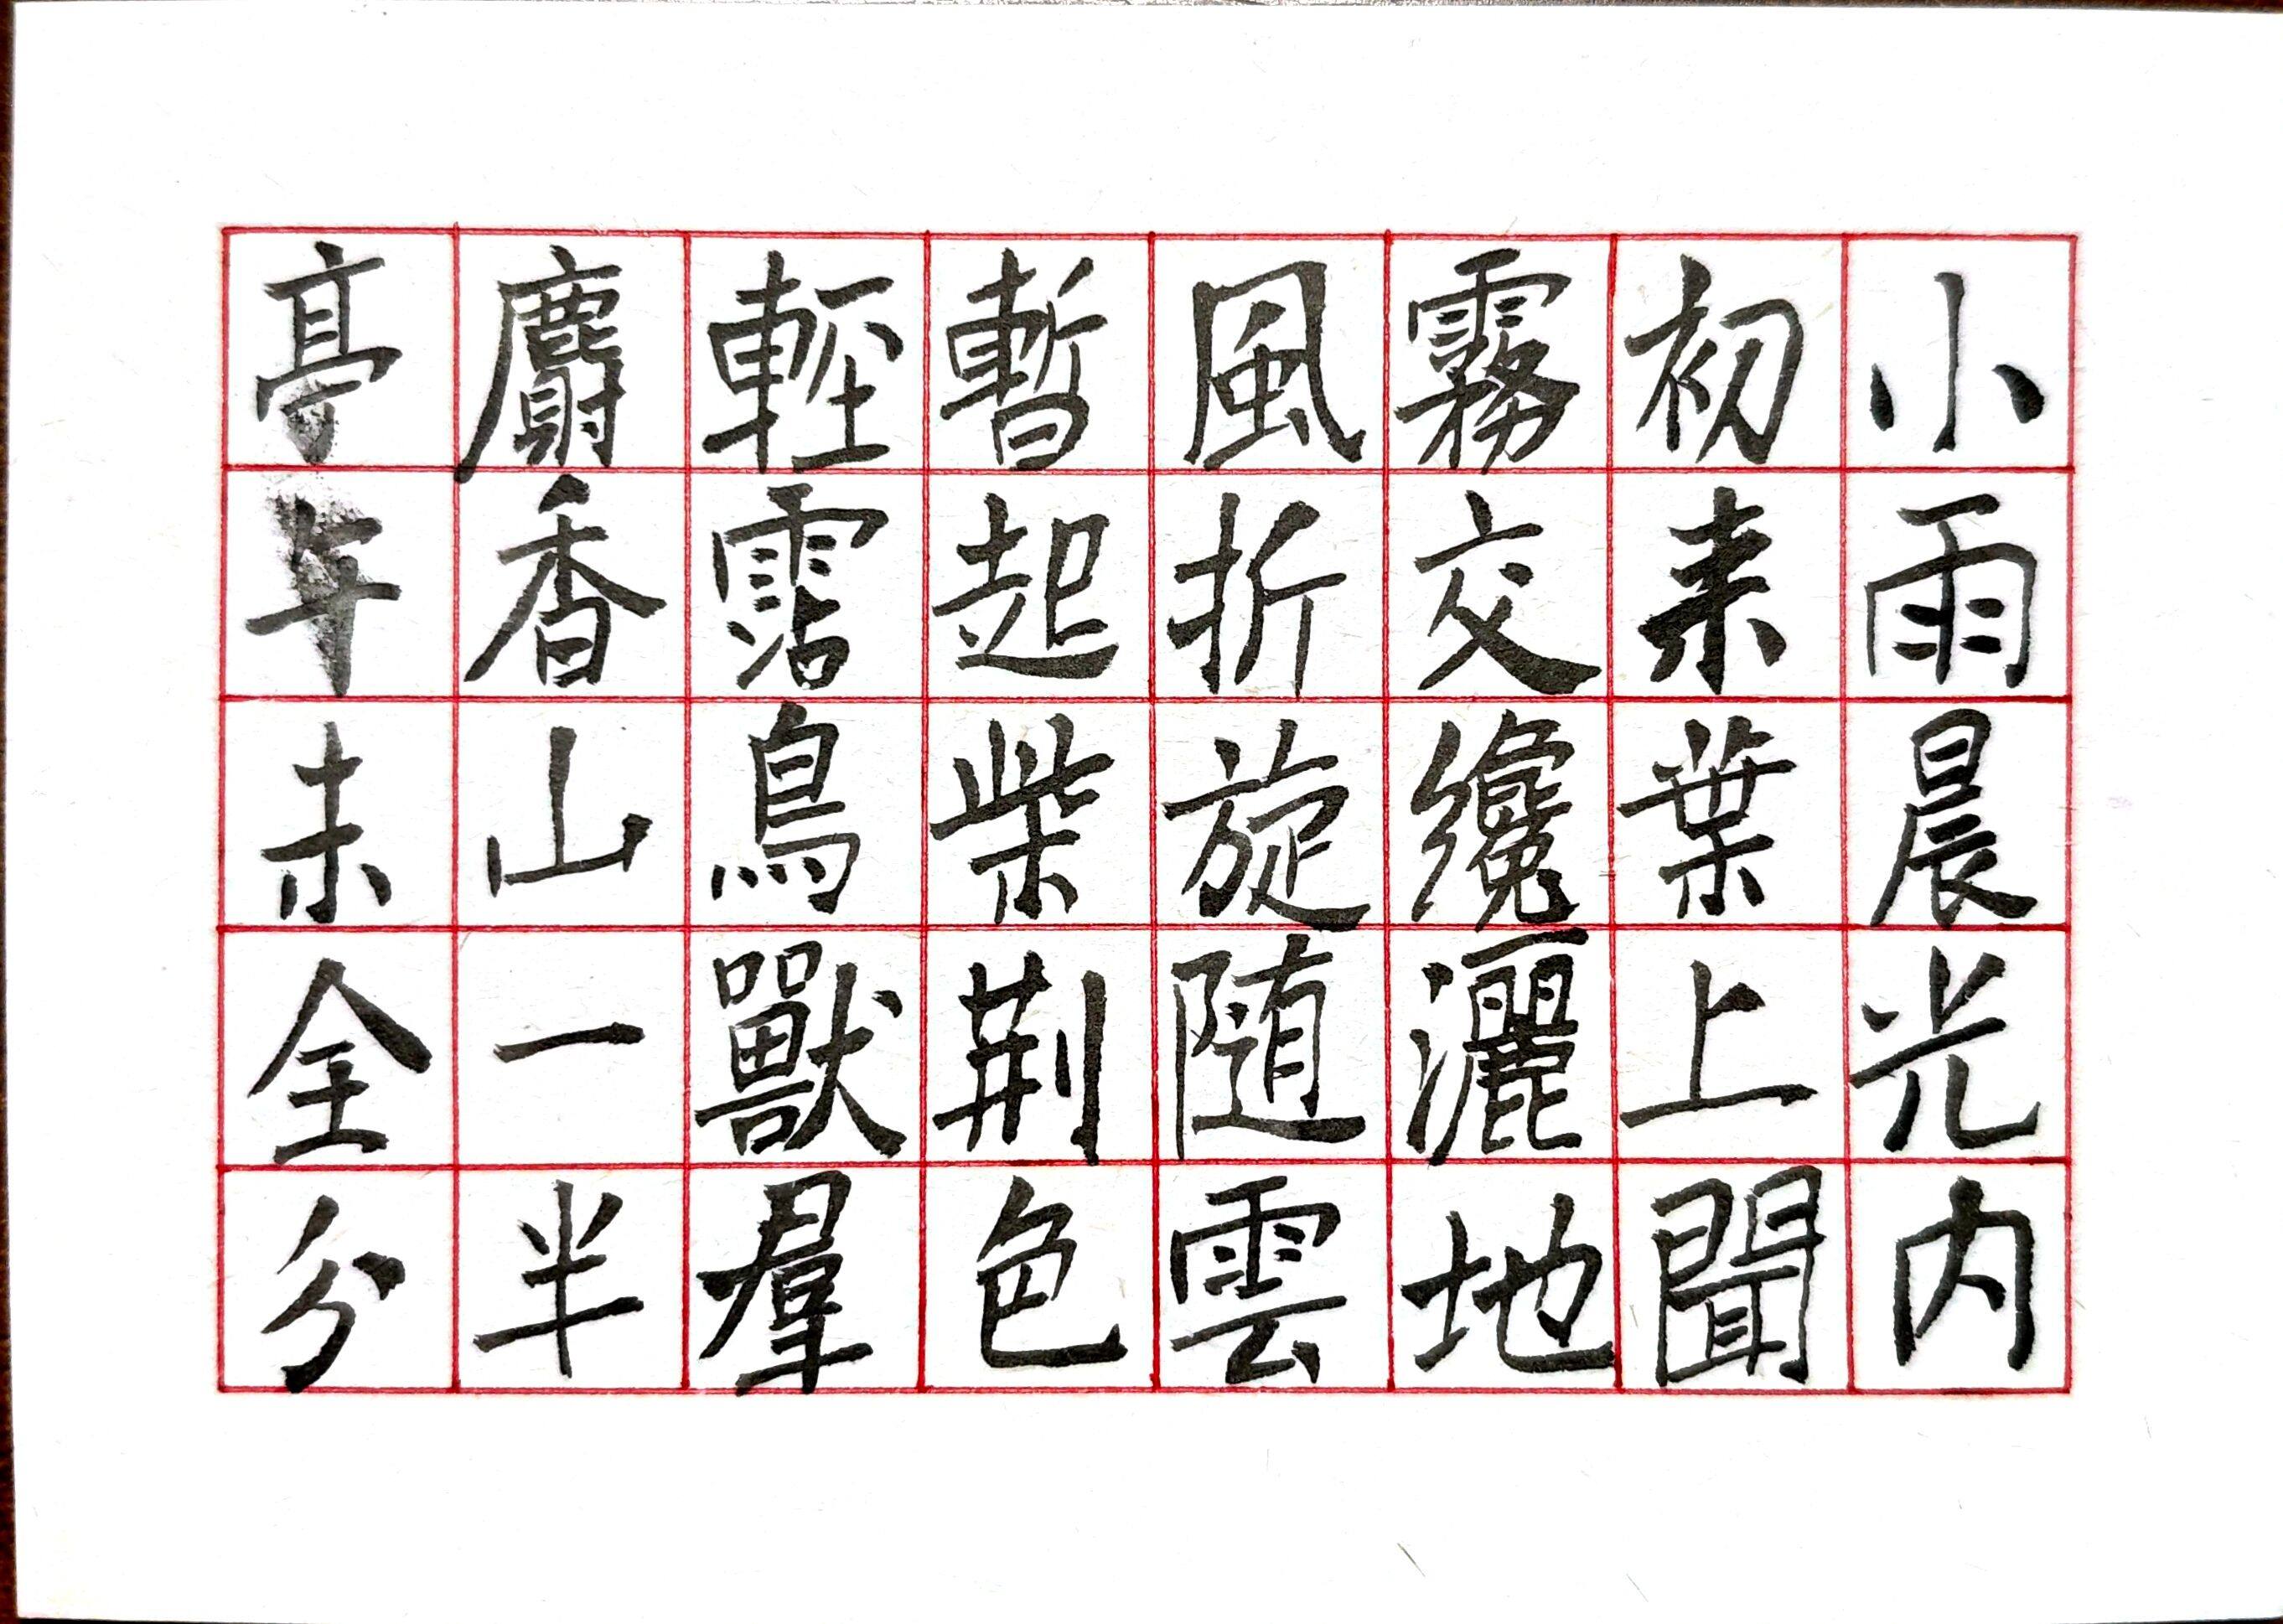 小雨晨光内
初来葉上聞
霧交纔灑地
風折旋随雲
暫起柴荆色
輕霑鳥獸羣
麝香山一半
亭午未全分